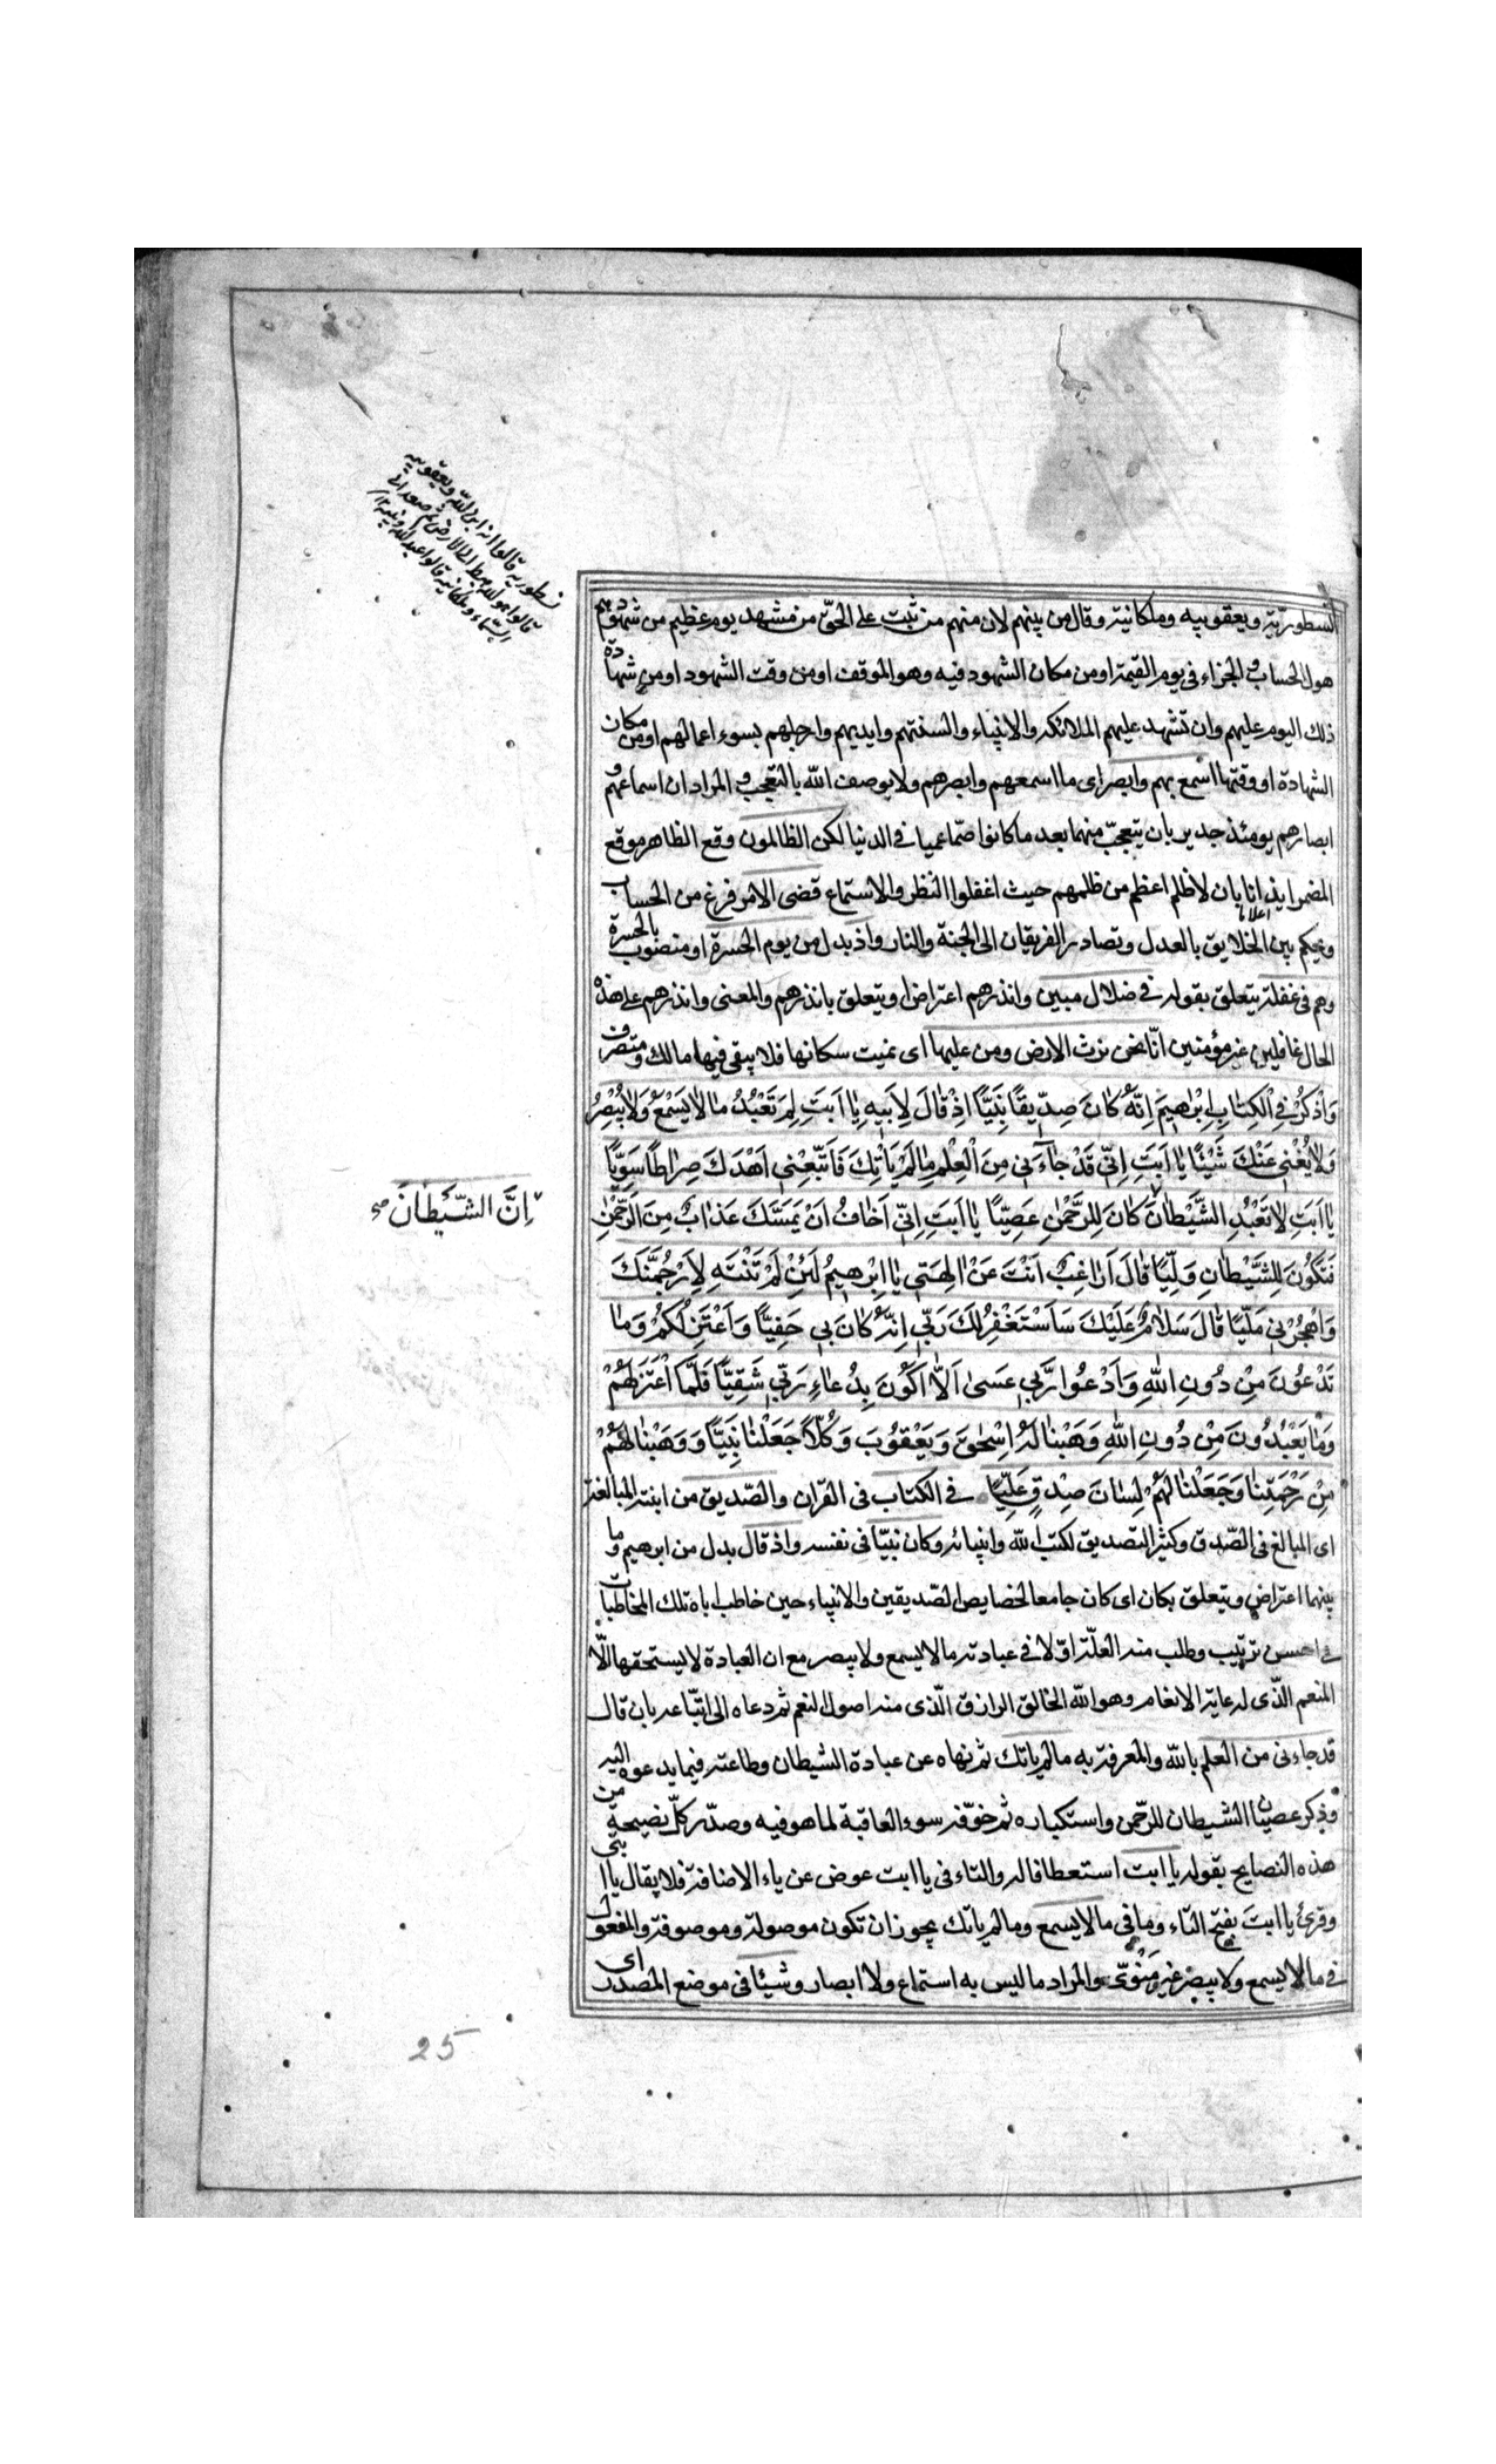 النسطورية ويعقوبيه وملكانية وقال من بينهم لان منهم من ثبت على الحق من مشهد يوم عظيم من شهودهم
هول الحساب والجزاء فى يوم القيمة او من مكان الشهود فيه وهو الموقف او من وقت الشهود او من شهادة
ذلك اليوم عليهم وان تشهد عليهم الملائكه والانبياء والسنتهم وايديهم وارجلهم بسوء اعمالهم او من مكان
الشهادة او وقتها اسمع بهم وابصر اى ما اسمعهم وابصرهم ولا يوصف الله بالتعجب والمراد ان اسماعهم و
ابصارهم يومئذ جدير بان يتعجّب منهما بعد ما كانوا صمّا عميا فى الدنيا لكن الظالمون وقع الظاهر موقع
المضمر ايذانا بان لا ظلم اعظم من ظلمهم حيث اغفلوا النظر والاستماع قضى الامر فرغ من الحساب
اعلانا
وحكم بين الخلايق بالعدل وتصادر الفريقان الى الجنة والنار واذ بدل من يوم الحسرة او منصوب بالحسرة
وهم فى غفلة يتعلق بقوله فى ضلال مبين وانذرهم اعتراض او يتعلق بانذرهم والمعنى وانذرهم على هذه
الحال غافلين غير مؤمنين انّا نحن نرث الارض ومن عليها اى نميت سكانها فلا يبقى فيها مالك ومتصرف
وَاذْكُرْ فِى الْكِتَابِ اِبْرٰهِيمَ اِنَّهُ كَانَ صِدِّيقًا نَبِيًّا اِذْ قَالَ لِاَبِيهِ يَا اَبَتِ لِمَ تَعْبُدُ مَا لَا يَسْمَعُ وَلَا يُبْصِرُ
وَلَا يُغْنِى عَنْكَ شَيْئًا يَا اَبَتِ اِنِّى قَدْ جَاءَنِى مِنَ الْعِلْمِ مَا لَمْ يَأْتِكَ فَاتَّبِعْنِى اَهْدِكَ صِرَاطًا سَوِيًّا
يَا اَبَتِ لَا تَعْبُدِ الشَّيْطَانَ كَانَ لِلرَّحْمٰنِ عَصِيًّا يَا اَبَتِ اِنِّى اَخَافُ اَنْ يَمَسَّكَ عَذَابٌ مِنَ الرَّحْمٰنِ
فَتَكُونَ لِلشَّيْطَانِ وَلِيًّا قَالَ اَرَاغِبٌ اَنْتَ عَنْ اٰلِهَتِى يَا اِبْرٰهِيمُ لَئِنْ لَمْ تَنْتَهِ لَاَرْجُمَنَّكَ
وَاهْجُرْنِى مَلِيًّا قَالَ سَلَامٌ عَلَيْكَ سَاَسْتَغْفِرُ لَكَ رَبِّى اِنَّهُ كَانَ بِى حَفِيًّا وَاَعْتَزِلُكُمْ وَمَا
تَدْعُونَ مِنْ دُونِ اللّٰهِ وَاَدْعُوا رَبِّى عَسَىٰ اَلَّا اَكُونَ بِدُعَاءِ رَبِّى شَقِيًّا فَلَمَّا اعْتَزَلَهُمْ
وَمَا يَعْبُدُونَ مِنْ دُونِ اللّٰهِ وَهَبْنَا لَهُ اِسْحٰقَ وَيَعْقُوبَ وَكُلًّا جَعَلْنَا نَبِيًّا وَوَهَبْنَا لَهُمْ
مِنْ رَحْمَتِنَا وَجَعَلْنَا لَهُمْ لِسَانَ صِدْقٍ عَلِيًّا فى الكتاب فى القران والصّديق من ابنية المبالغة
اى المبالغ فى الصّدق وكثير التصديق لكتب الله وانبيائه وكان نبيّا فى نفسه واذ قال بدل من ابرهيم وما
بينهما اعتراض ويتعلق بكان اى كان جامعا لخصايص الصّديقين والانبياء حين خاطب اباه تلك المخاطبات
فى احسن ترتيب وطلب منه العلّة اوّلا فى عبادته ما لا يسمع ولا يبصر مع ان العبادة لا يستحقها الّا
المنعم الّذى له غاية الانعام وهو الله الخالق الرازق الّذى منه اصول النعم ثم دعاه الى اتّباعه بان قال
قد جاءنى من العلم بالله والمعرفة به ما لم ياتك ثم نهاه عن عبادة الشيطان وطاعته فيما يدعوه اليه
وذكر عصيان الشيطان للرّحمن واستكباره ثم خوّفه سوء العاقبة لما هو فيه وصدّر كلّ نصيحة من
هذه النصايح بقوله يا ابت استعطافا له والتاء فى يا ابت عوض عن ياء الاضافة فلا يقال يا ابتى
وقرئ يا ابتَ بفتح التاء وما فى ما لا يسمع وما لم ياتك يجوز ان تكون موصولة وموصوفة والمفعول
فى ما لا يسمع ولا يبصر غير مَنْوىّ والمراد ما ليس به استماع ولا ابصار وشيئا فى موضع المصدر اى
نسطوريه قالوا انه ابن الله ويعقوبيه
قالوا هو الله هبط الى الارض ثم صعد الى
السماء وملكانيه قالوا عبد الله ونبيه
اِنَّ الشَّيْطَانَ صح
25